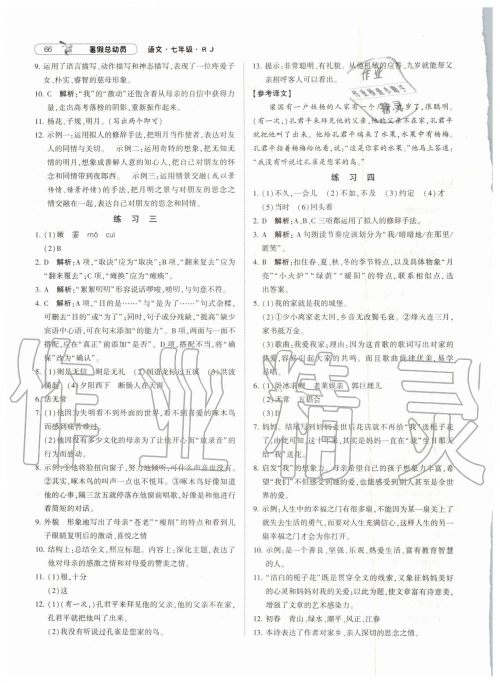 66 暑假总动员 语文·七年级·RJ
9. 运用了语言描写、动作描写和神态描写,表现了一位疼爱子
女、朴实、睿智的慈母形象。
10. C 解析:"我"的"激动"还因为母亲的良苦用心,希望"我"
能放松,走出高考落榜的阴影,重新振作起来。
11. 杨花,子规,明月。
12. 示例一:运用拟人的修辞手法,把月亮人格化,表达对友
人的同情与关切。 示例二:运用拟人的修辞手法,把无知
无情的明月,想象成善解人意的知心人,把自己对朋友的怀
念和同情带到夜郎西。 示例三:运用情景交融(或融情于
景、借景抒情)的手法,把月明之景与对朋友的思念之
情交融在一起,表达出对友人的同情与思念。
练 习 三
1. (1)嫩 霎 mǒ cuì
(2)B
2. D 解析:A 项,"取诀"应为"取决";B 项,"翻来复去"应为
"翻来覆去";C 项,"瘫换"应为"瘫痪"。
3. B 解析:"絮絮叨叨"形容说话啰唆、唠叨,与句意不符。
4. C 解析:A 项,"目的是……"与"是为了……"句式杂糅,
可删去"目的"或"为了";B 项,
宾语中心语,可在句末加"的能力";D 项,两面与一面不
搭配,应在"真正"前加"是否";C 项,搭配不当,应将"确
保"改为"确认"。
5. (1)则是无信 则是无礼 (2)潮平两岸阔
(4)夕阳西下 断肠人在天涯
6. 活 无常
7. (1)他因为关明
(2)她
行为而感动。
8.
②其实,啄木鸟的叫声一点也不悦耳。③啄木鸟好像知道
他的心事,隔三岔五就停在他窗前唱歌,好像是和他进行一
个短暂的对话。
9. 外貌 形象地写出了母亲"苍老""瘦削"的特点和看到儿
子眼睛复明后的激动、喜悦之情
10. 结构上:总结全文,照应标题。内容上:深化主题,表达了
他对母亲的感激之情和对母爱的赞美之情。
11. (1)很,十分
(2)这
12. (1)(有一次,)孔君平来拜见他的父亲,父亲不在家,
孔君平就把他叫了出来。
(2)我没有听说过孔雀是您家的鸟。
13. 提示:非常聪明,有礼貌。从他机敏的应答,九岁就能帮父
亲招呼客人可以看出。
【参考译文】
梁国有一户姓杨的人家有一个
很聪明。
(有一次,)孔君平来拜见他的父亲,父亲不在家,孔君平
就把他叫了出来。他给孔君平端来水果,水果中有杨梅。
孔君平指着杨梅给他看,说:"这是您家的水果。"他马上
回答说:"我没有听说过孔雀是您家的鸟。"
练 习 四
1. (1)不久,一会儿 (2)不如,不及 (3)约定 (4)才
(5)当时 (6)回头看
2. D 解析:A、B、C 三项都运用了拟人的修辞手法。
3. A 解析:A 句朗读节奏应该划分为"我/暗暗地/在那里/
匿笑"。
4. B 解析:扣住春、夏、秋、冬的季节特点,以及具体物象"月
亮""小火炉""绿荫""暖阳"的特点,联系相似点,选
出答案。
5. (1)我的家就是我的城堡。
(2)①少小离家老大回,乡音无改鬓毛衰。 ②烽火连三月,
家书抵万金。
(3)示例:深受欢迎。因为这首歌的歌词写出对家
的
感。
6. (1)卧冰求鲤 老莱娱亲 郭巨埋儿
(2)无常 五猖会
7. 妈妈。结尾写到妈妈去世后花店就不再给"我"送栀子花
了,由此可知,这二十年来,其实是妈妈一直在"我"生日那天
给"我"送花。
8. 启发"我"的想象力,母亲希望自己的孩子想象力丰富,希
望"我"也能感受到想象的世界和那个充满生命力的真实
世界。
9. 示例:人生中的幸福之门有很多扇,不能因为某一扇关上了
就失去生活的勇气,而要对人生充满信心,这样人生的另一
扇幸福之门才会打开。
10. 示例:是一个善良、坚强、乐观,热爱生活,富有教育智慧的
人。
11. "洁白的栀子花"既是贯穿全文的线索,又象征着母亲美好
的心灵和美丽的爱,以此为题,贴切感人,使文章更有诗意,
增强了文章的艺术感染力。
12. 初春 青山,绿水,潮平,风正,归春
13. 本诗表达了作者对家乡、亲人深切的思念之情。
作业精灵